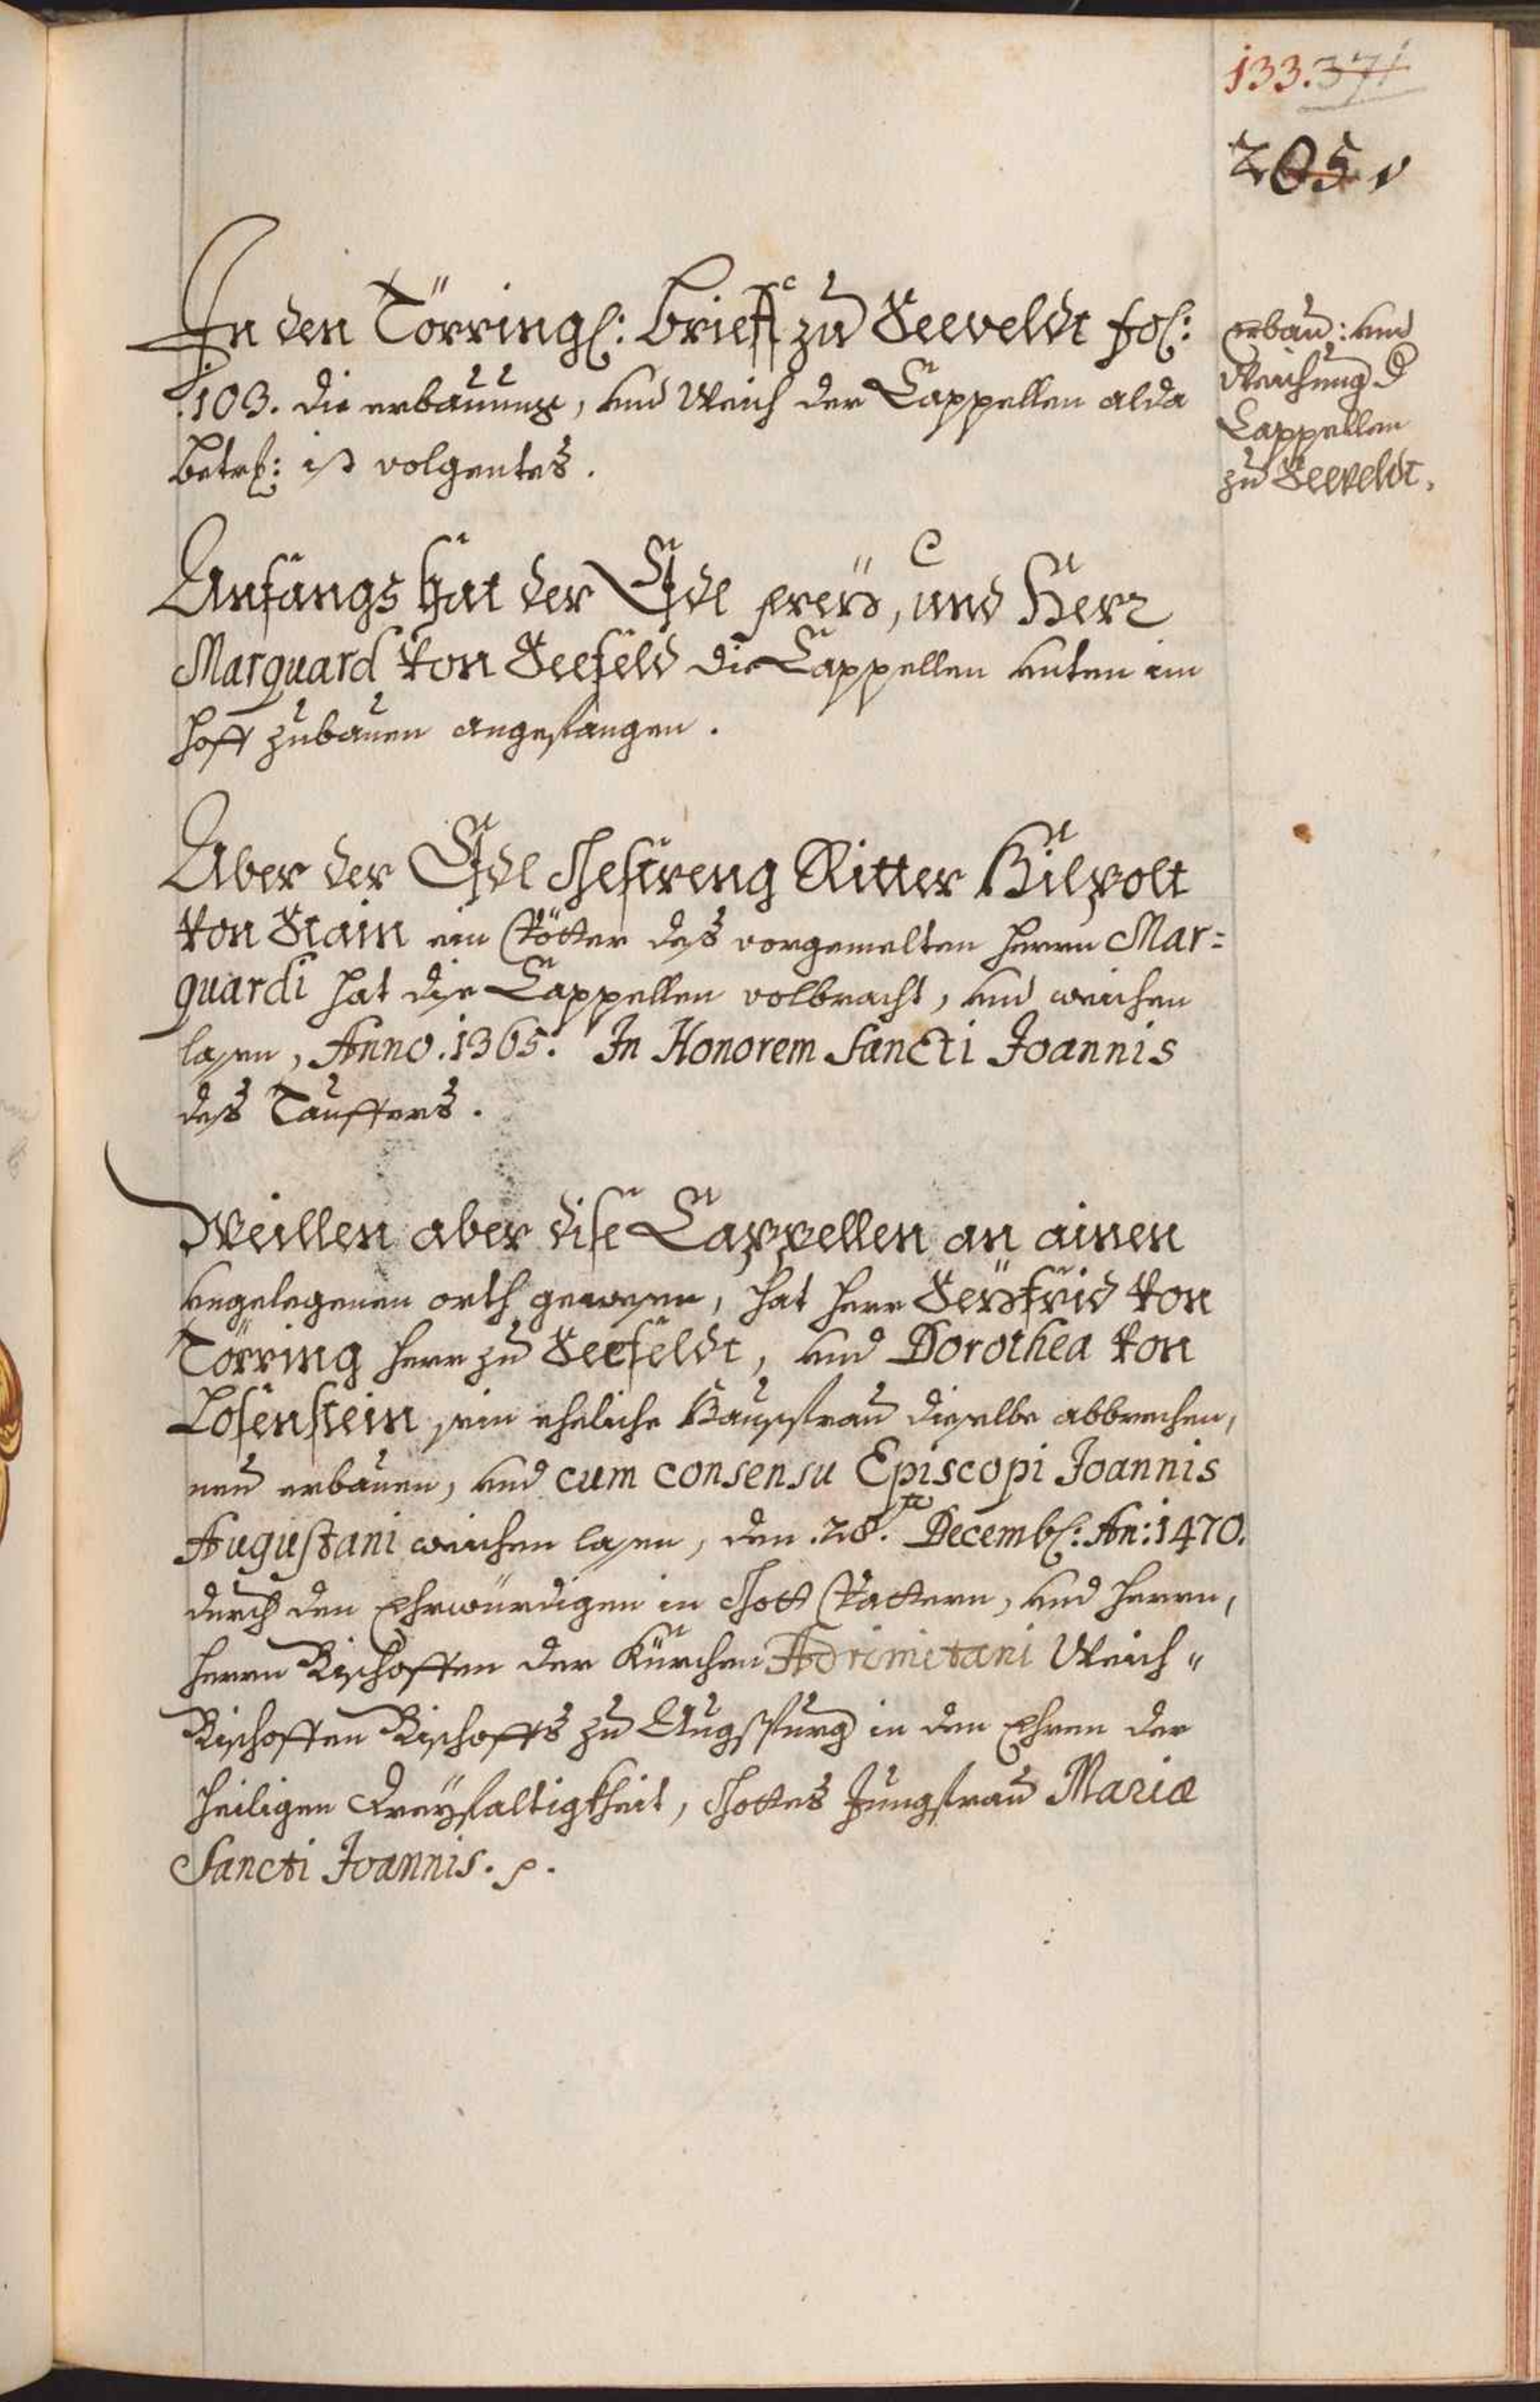 133. 371
205 v
In den Törring: Brieff zu Seeveldt fol:
.103. die erbauung, und Weich der Cappellen alda
betrf: ist volgentes.
erbau: und
Weichung d
Cappellen
zu Seeveldt.
Anfangs hat der Edl freÿ, und Herr
Marquard von Seefeld die Cappellen unten im
hoff zubauen angefangen.
Aber der Edl Gestreng Ritter Hilpolt
von Stain ein Vötter deß vorgemelten herrn Mar=
quardi hat die Cappellen volbracht, und weichen
lasen, Anno. 1365. In Honorem Sancti Joannis
deß Tauffers.
Weillen aber dise Cappellen an ainen
ungelegenen orth gewesen, hat herr Seÿfrid von
Törring herr zu Seefeldt, und Dorothea von
Losenstein sein eheliche Hausfrau dieselbe abbrechen,
neu erbauen, und cum consensu Episcopi Joannis
Augustani weichen lasen, den .28.te Decemb: An: 1470.
durch den Ehrwürdigen in Gott Vattern, und herrn,
herrn Bischoffen der Kürchen Adrimetani Weich"
Bischoffen Bischoffs zu Augspurg in den Ehren der
heiligen Dreÿfaltigkheit, Gottes Jungfrau Mariæ
Sancti Joannis. p.